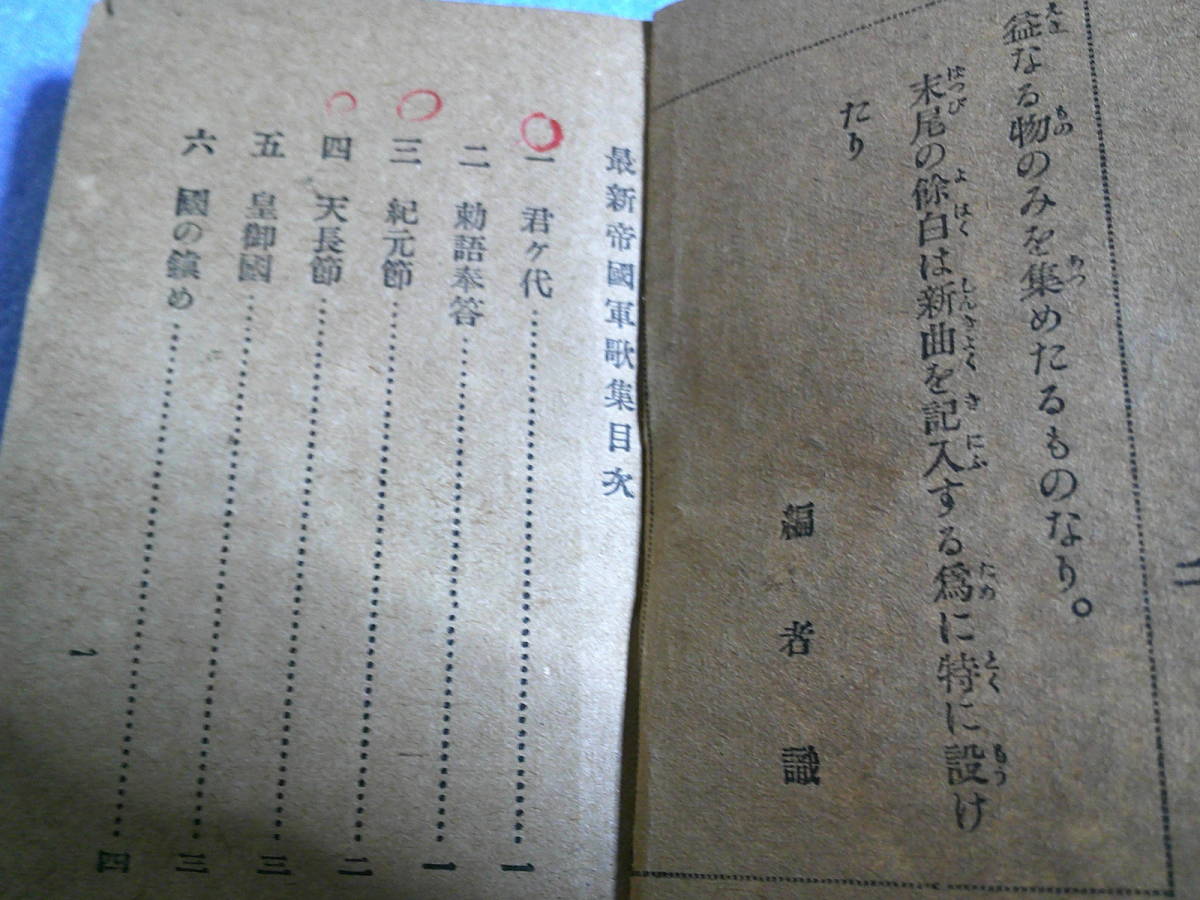 益なる物のみを集めたるものなり。
末尾の餘白は新曲を記入する爲に特に設け
たり
編者識
最新帝國軍歌集目次
一 君ヶ代……………………一
二 勅語奉答……………………一
三 紀元節……………………二
四 天長節……………………三
五 皇御國……………………三
六 國の鎭め……………………四
1